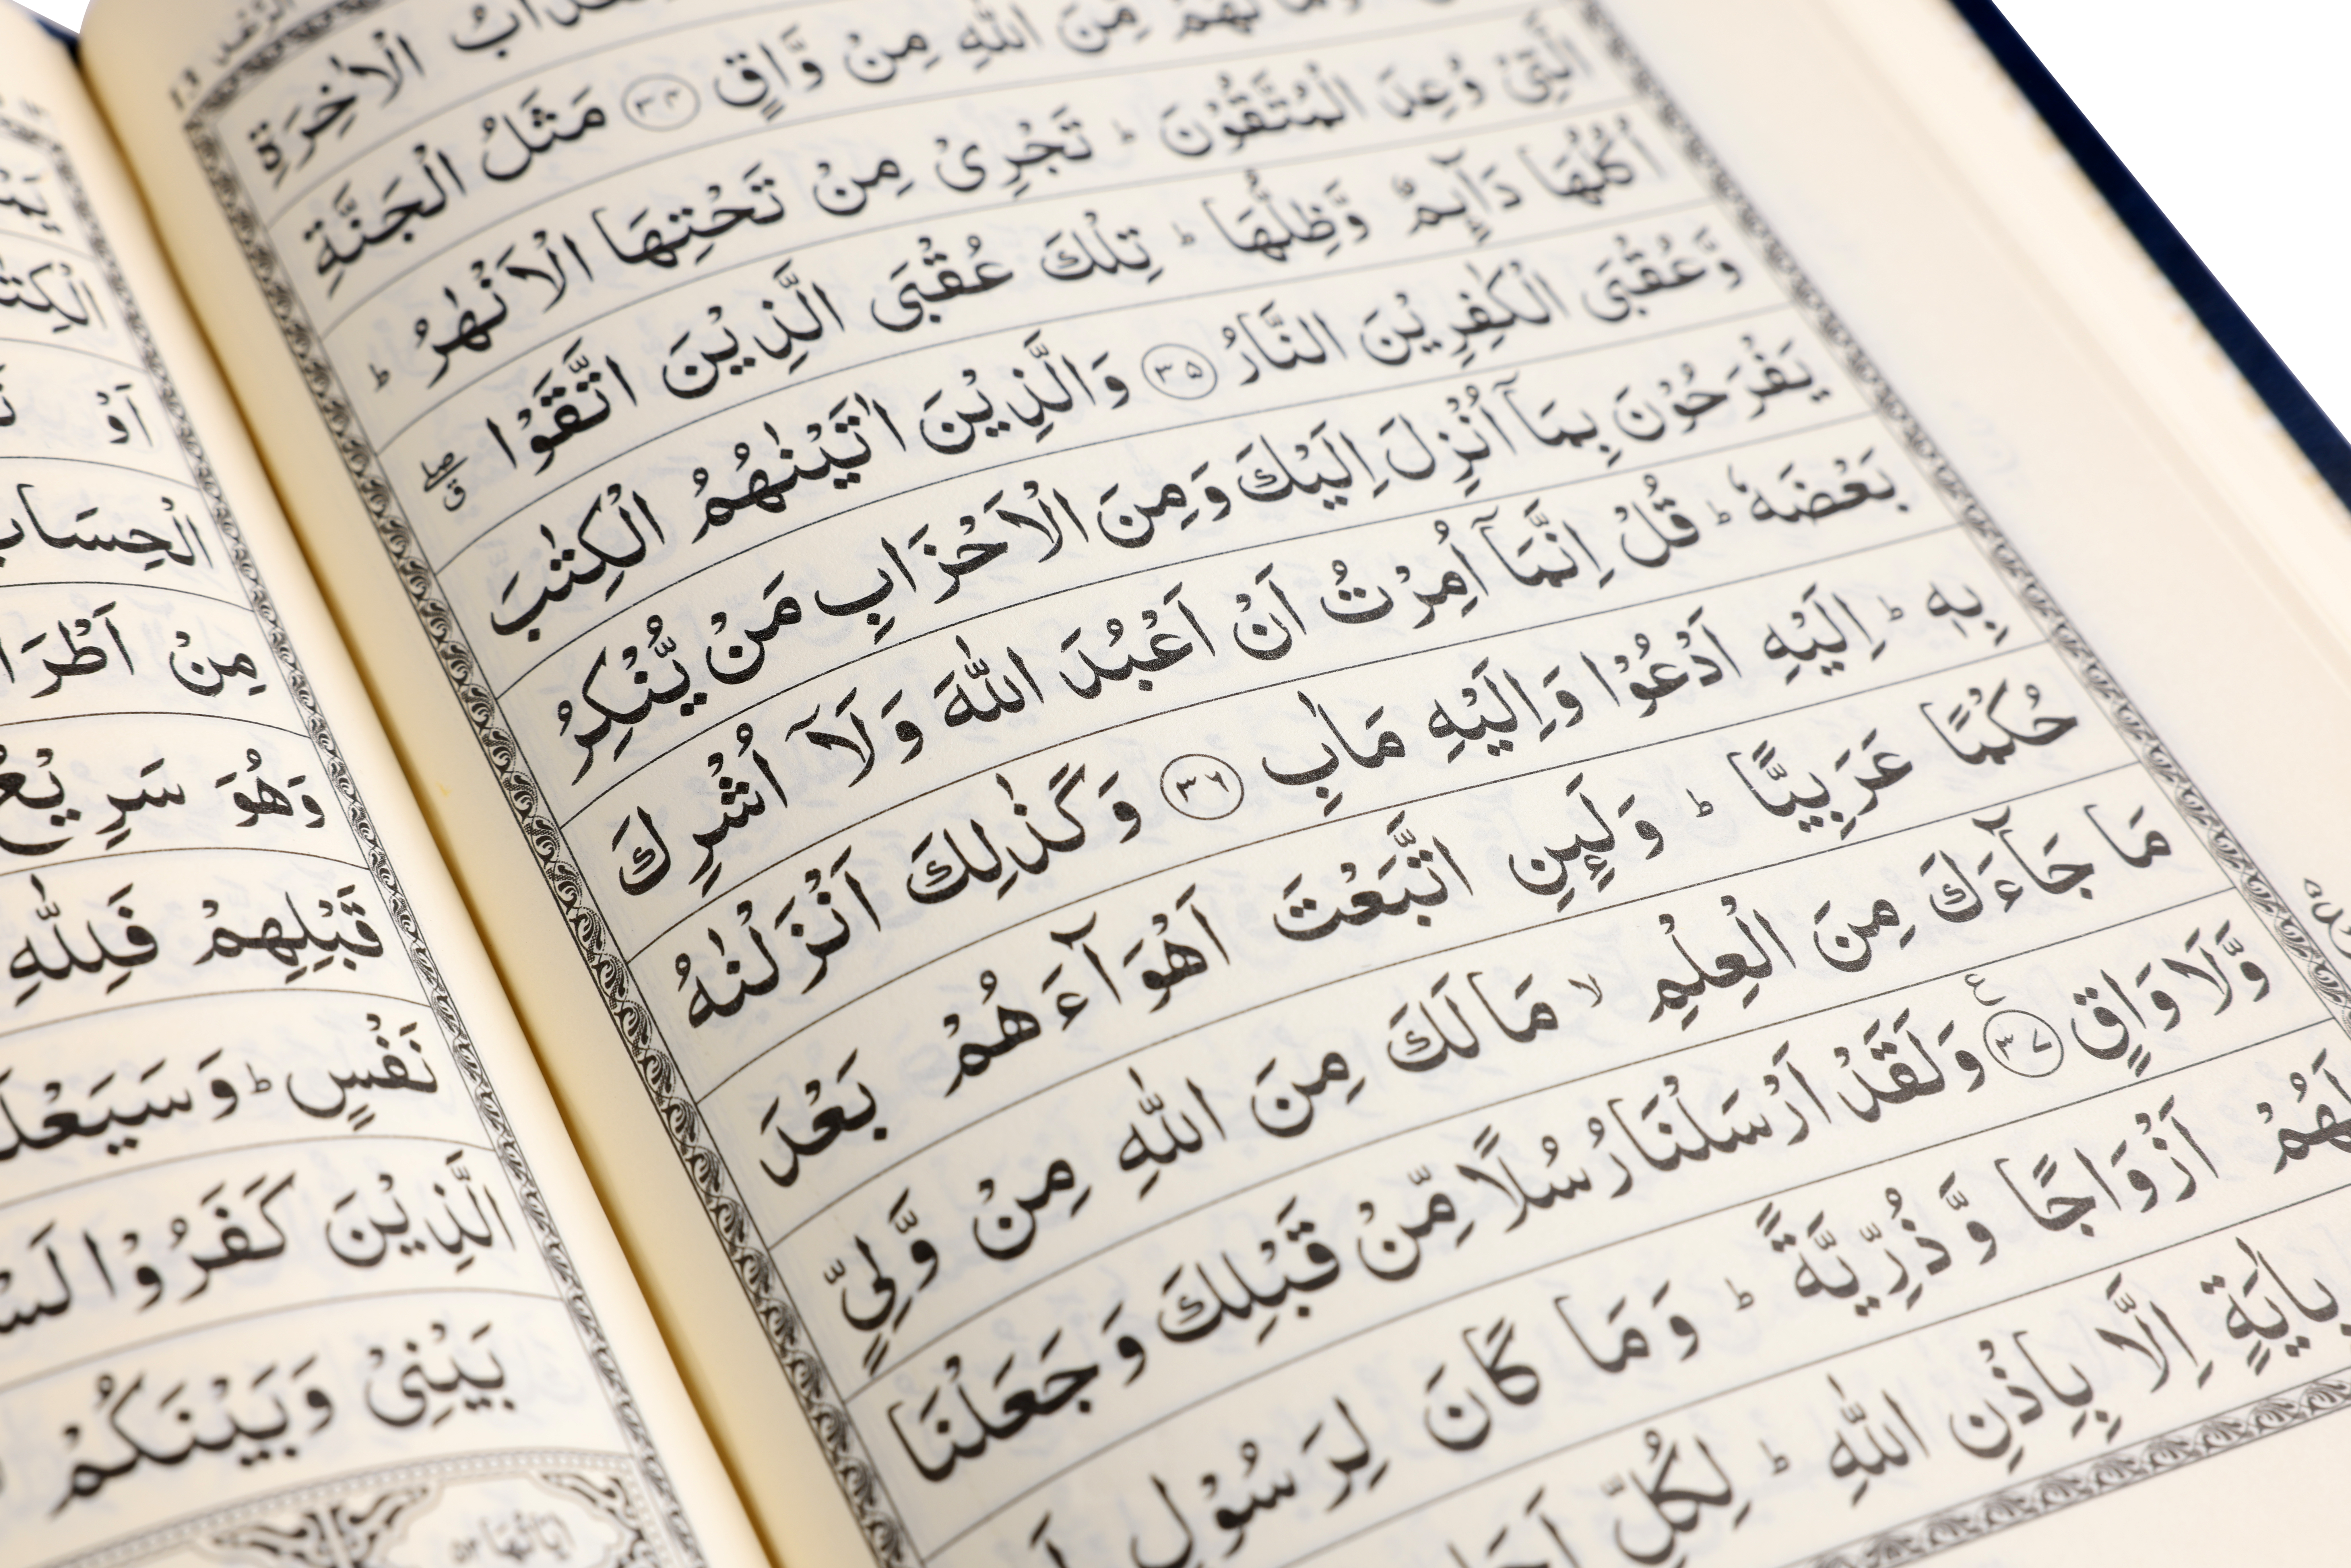 الْاٰخِرَةِ
لَهُمْ مِّنَ اللّٰهِ مِنْ وَّاقٍ ﴿۳۴﴾ مَثَلُ الْجَنَّةِ
الَّتِیْ وُعِدَ الْمُتَّقُوْنَ ؕ تَجْرِیْ مِنْ تَحْتِهَا الْاَنْهٰرُ ؕ
اُكُلُهَا دَآىِٕمٌ وَّظِلُّهَا ؕ تِلْكَ عُقْبَی الَّذِیْنَ اتَّقَوْا ۖۗ
وَّعُقْبَی الْكٰفِرِیْنَ النَّارُ ﴿۳۵﴾ وَالَّذِیْنَ اٰتَیْنٰهُمُ الْكِتٰبَ
یَفْرَحُوْنَ بِمَاۤ اُنْزِلَ اِلَیْكَ وَمِنَ الْاَحْزَابِ مَنْ یُّنْكِرُ
بَعْضَهٗ ؕ قُلْ اِنَّمَاۤ اُمِرْتُ اَنْ اَعْبُدَ اللّٰهَ وَلَاۤ اُشْرِكَ
بِهٖ ؕ اِلَیْهِ اَدْعُوْا وَاِلَیْهِ مَاٰبِ ﴿۳۶﴾ وَكَذٰلِكَ اَنْزَلْنٰهُ
حُكْمًا عَرَبِیًّا ؕ وَلَىِٕنِ اتَّبَعْتَ اَهْوَآءَهُمْ بَعْدَ
مَا جَآءَكَ مِنَ الْعِلْمِ ۙ مَا لَكَ مِنَ اللّٰهِ مِنْ وَّلِیٍّ
وَّلَا وَاقٍ ﴿۳۷﴾ وَلَقَدْ اَرْسَلْنَا رُسُلًا مِّنْ قَبْلِكَ وَجَعَلْنَا
لَهُمْ اَزْوَاجًا وَّذُرِّیَّةً ؕ وَمَا كَانَ لِرَسُوْلٍ
بِاٰیَةٍ اِلَّا بِاِذْنِ اللّٰهِ ؕ لِكُلِّ
اَوْ
الْحِسَابُ
مِنْ
وَهُوَ سَرِیْعُ
قَبْلِهِمْ فَلِلّٰهِ
نَفْسٍ ؕ وَسَیَعْلَ
الَّذِیْنَ كَفَرُوْا
بَیْنِیْ وَبَیْنَكُمْ